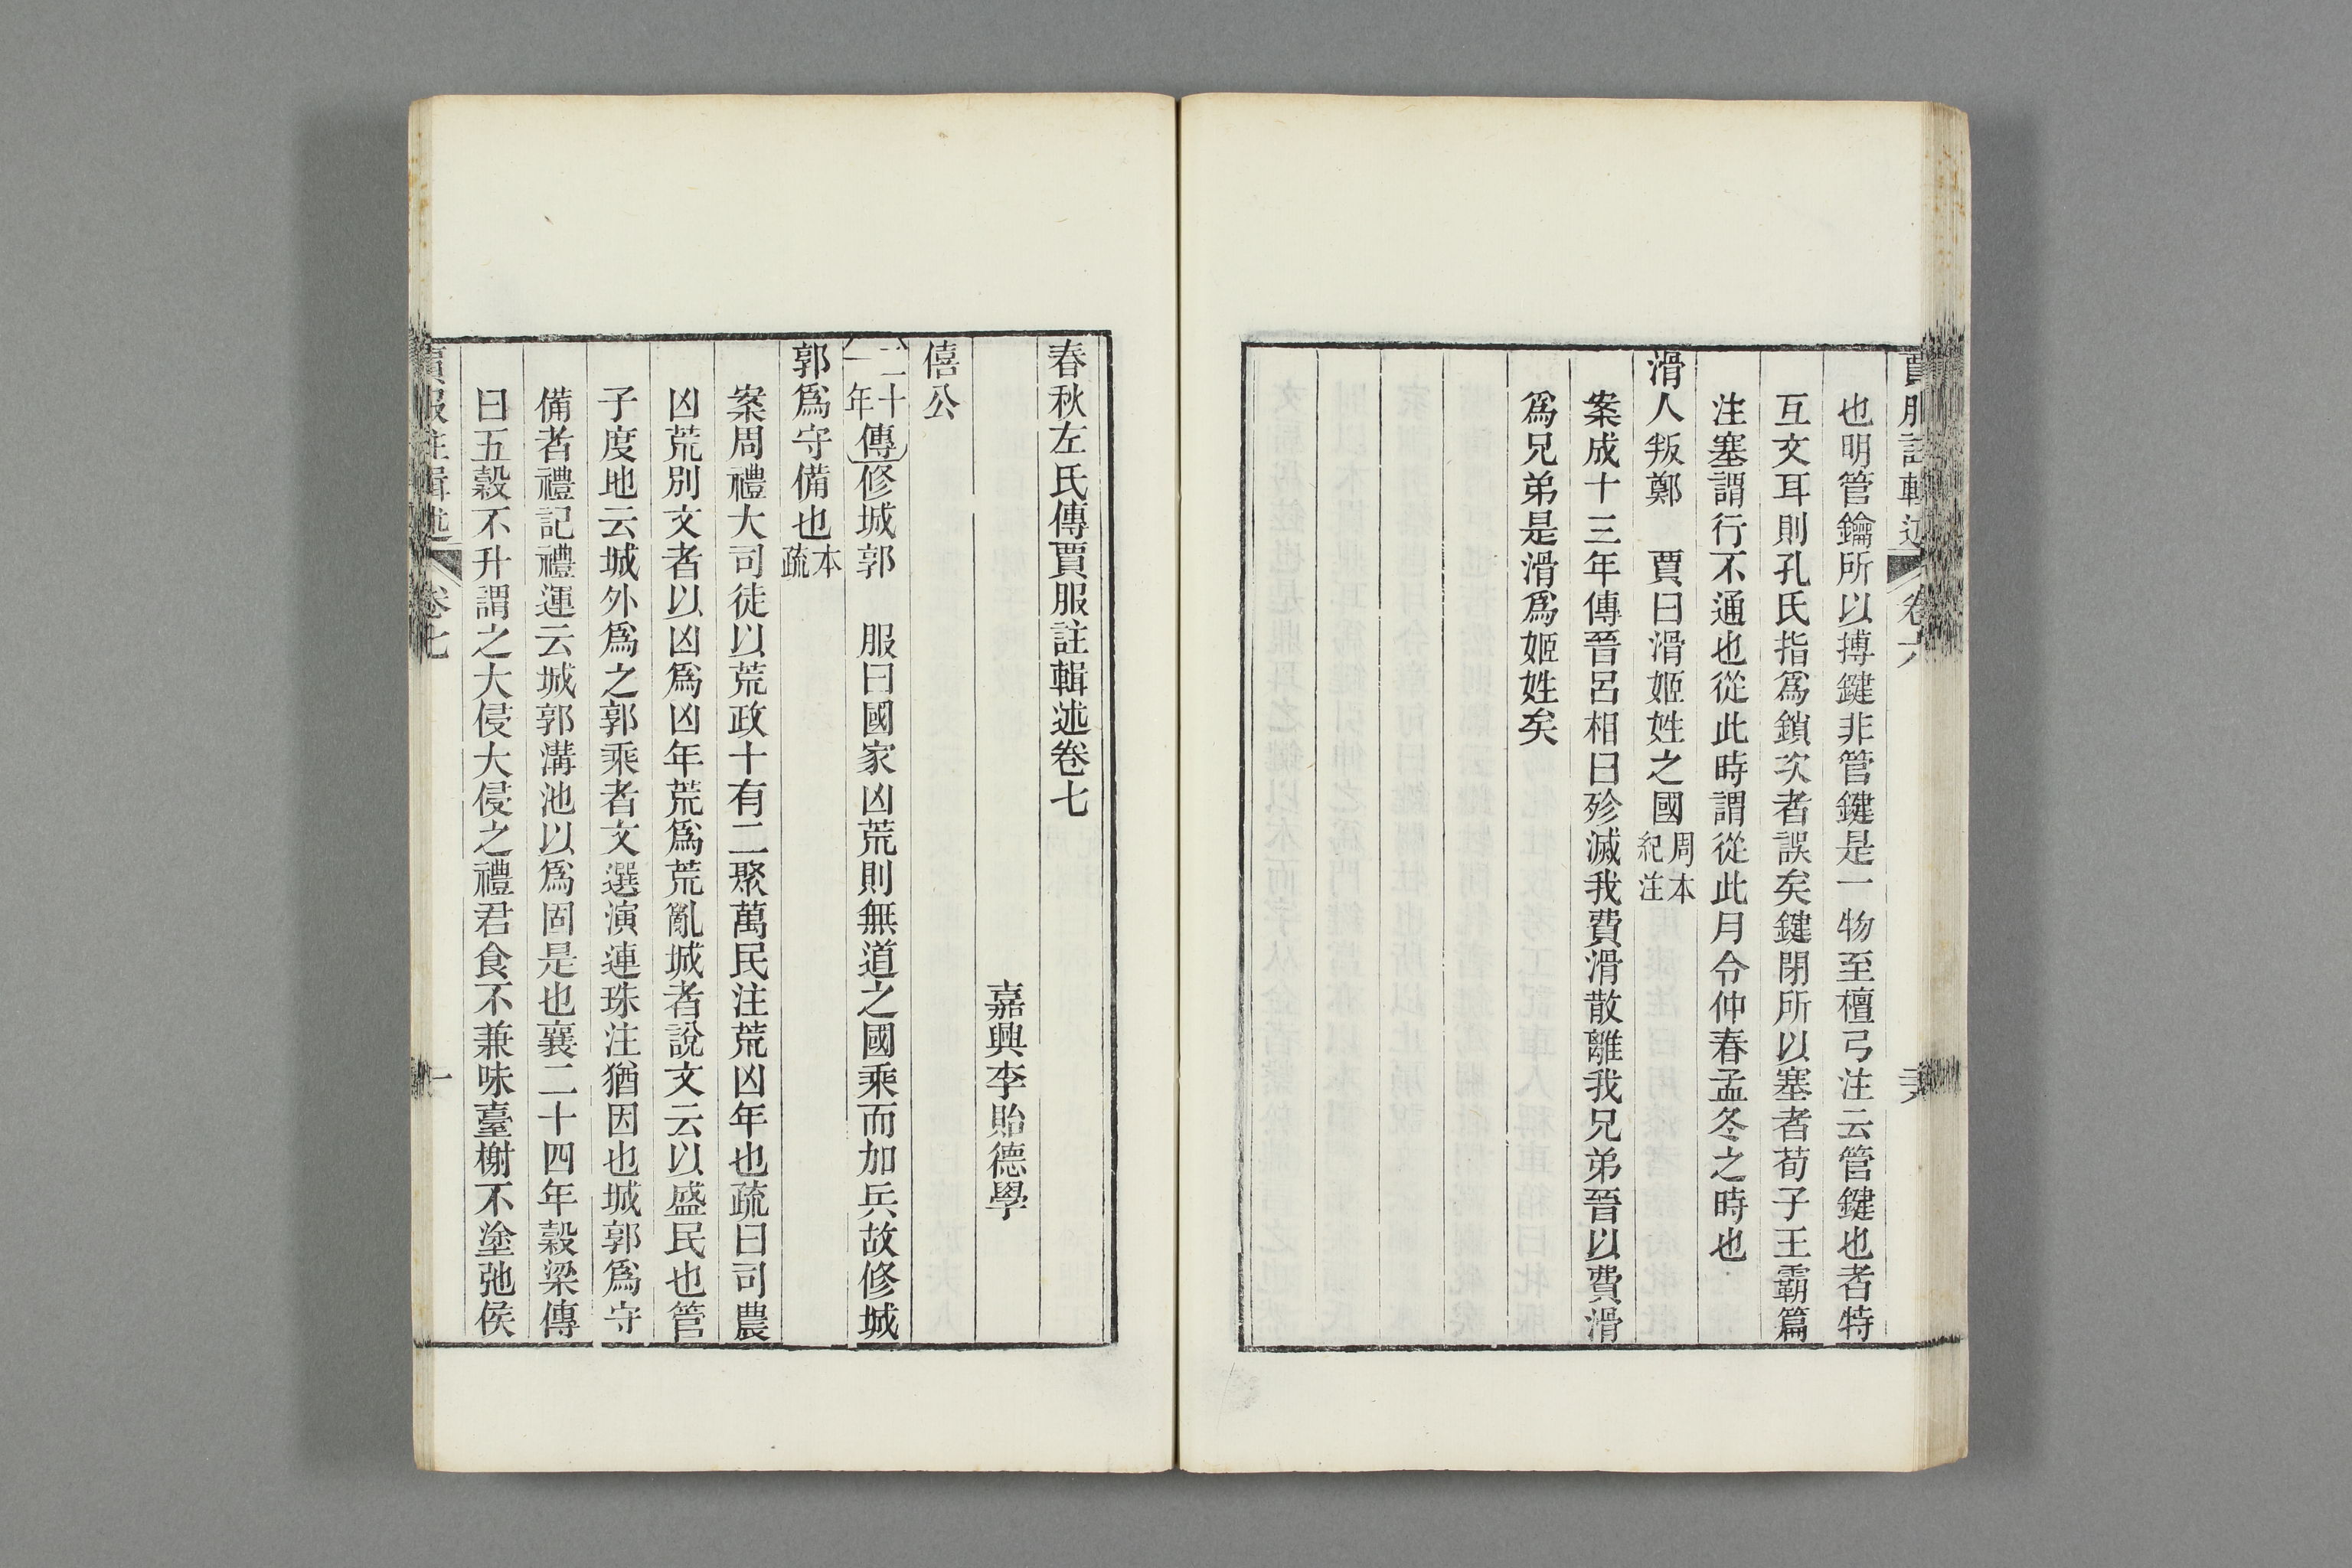 也明管鑰所以搏鍵非管鍵是一物至檀弓注云管鍵也者特
互文耳則孔氏指爲鎖次者誤矣鍵閉所以塞者荀子王霸篇
注塞謂行不通也從此時謂從此月令仲春孟冬之時也
滑人叛鄭　賈曰滑姬姓之國周本紀注
案成十三年傳晉呂相曰殄滅我費滑散離我兄弟晉以費滑
爲兄弟是滑爲姬姓矣
春秋左氏傳賈服註輯述卷七
嘉興李貽德學
僖公
二十一年傳修城郭　服曰國家凶荒則無道之國乘而加兵故修城
郭爲守備也本疏
案周禮大司徒以荒政十有二聚萬民注荒凶年也疏曰司農
凶荒別文者以凶爲凶年荒爲荒亂城者說文云以盛民也管
子度地云城外爲之郭乘者文選演連珠注猶因也城郭爲守
備者禮記禮運云城郭溝池以爲固是也襄二十四年穀梁傳
曰五穀不升謂之大侵大侵之禮君食不兼味臺榭不塗弛侯
賈服註輯述　卷七　一